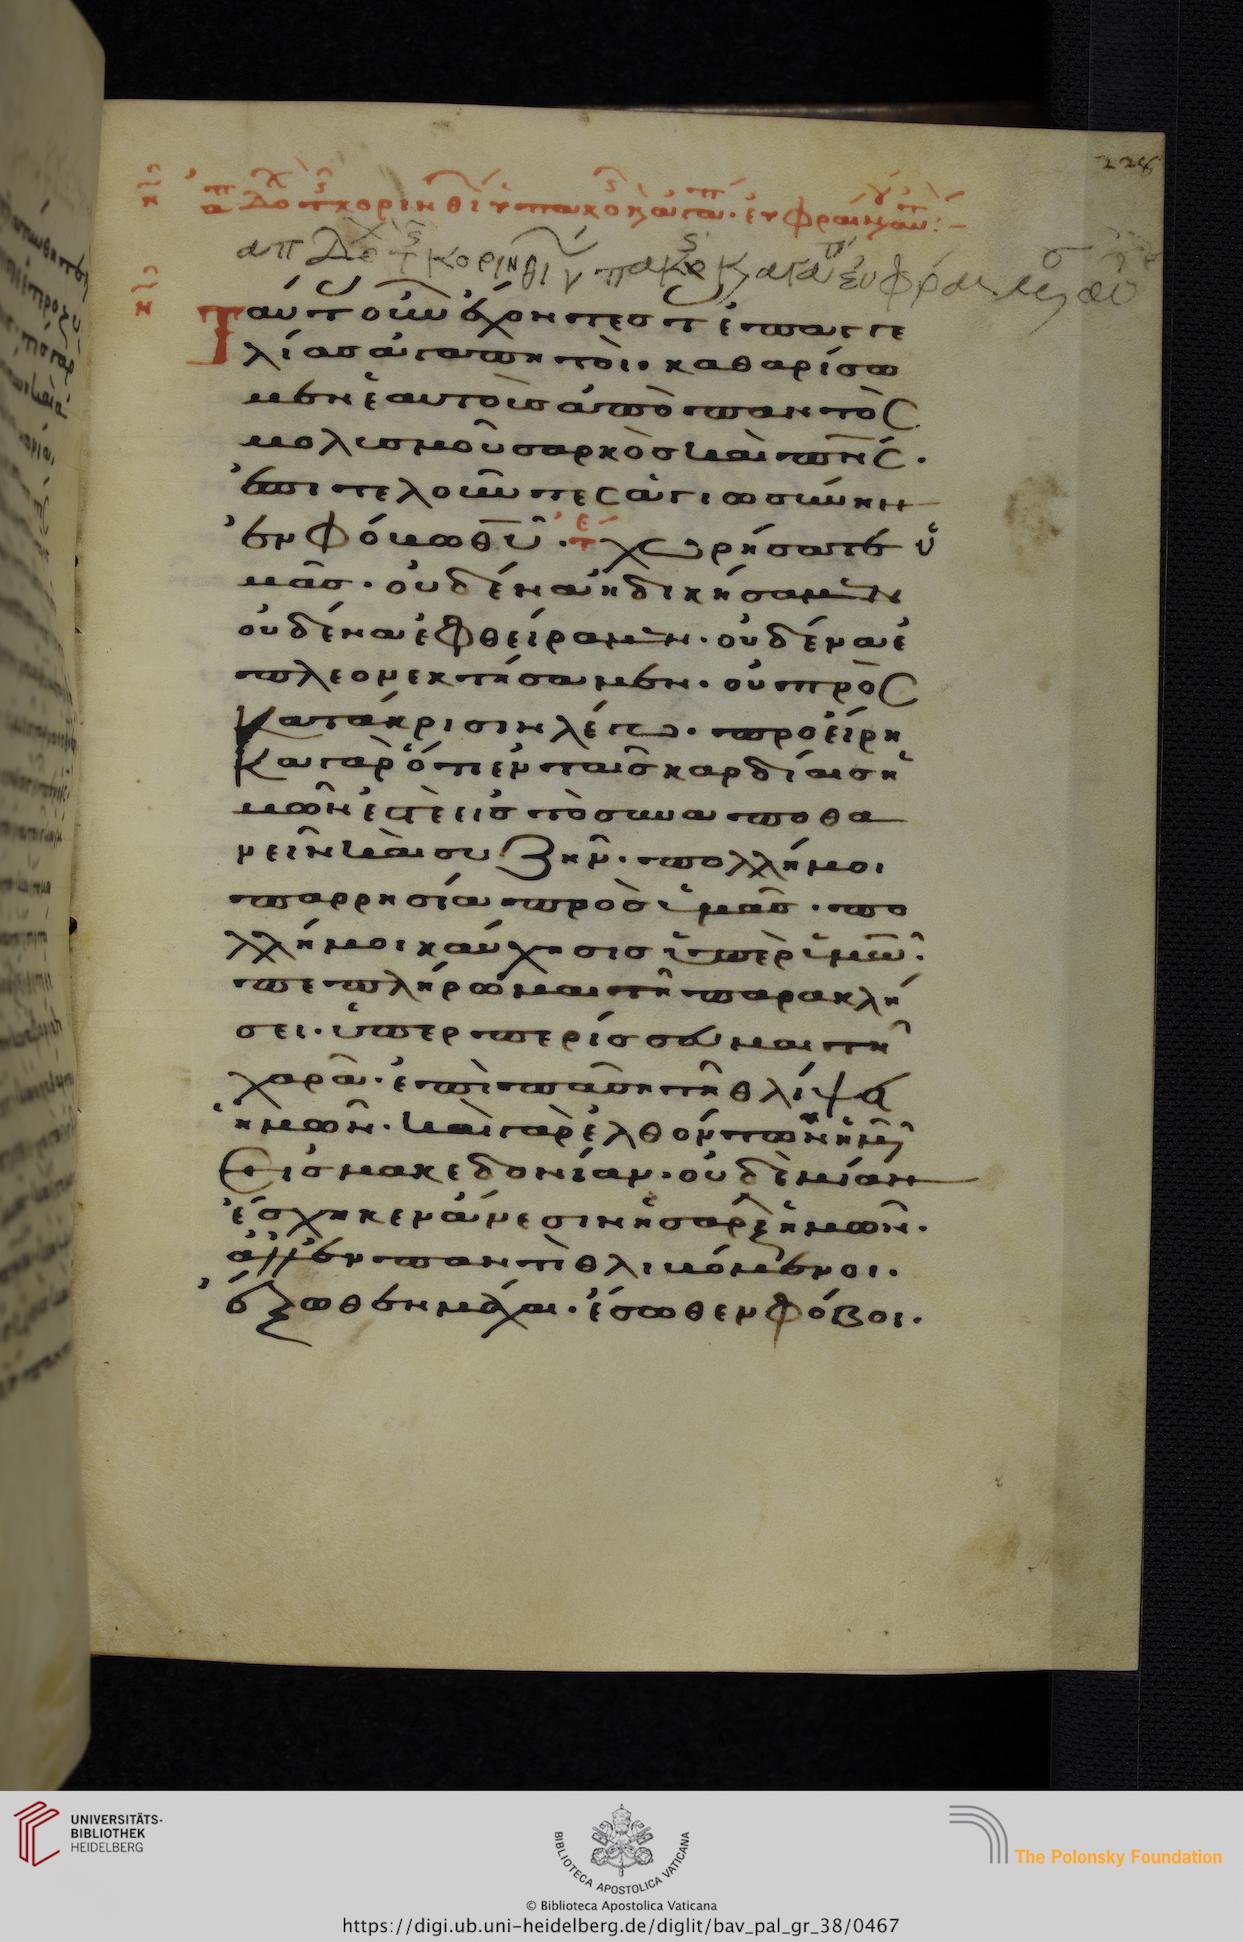 228
Ταύτας οὖν ἔχοντες τ ἐπαγγε
λίας ἀγαπητοί· καθαρίσω
μεν ἑαυτοὺς ἀπὸ παντὸς
μολυσμοῦ σαρκὸς καὶ πνς·
ἐπιτελοῦντες ἁγιωσύνην
ἐν φόβω θυ· χωρήσατε ὑ
μᾶς· οὐδένα ἠδικήσαμεν
οὐδένα ἐφθείραμεν· οὐδένα ἐ
πλεονεκτήσαμεν· οὐ πρὸς
κατάκρισιν λέγω· προείρη
κα γὰρ ὅτι ἐν ταῖς καρδίαις ἡ
μῶν ἐστὲ εἰς τὸ συναποθα
νεῖν καὶ συζῆν· πολλή μοι
παρρησία πρὸς ὑμᾶς· πο
λλή μοι καύχησις ὑπὲρ ὑμῶν·
πεπλήρωμαι τῆ παρακλή
σει· ὑπερπερισσεύομαι τῆ
χαρᾶ· ἐπὶ πάση τῆ θλίψει
ἡμῶν· καὶ γὰρ ἐλθόντων ἡμῶν
εἰς μακεδονίαν· οὐδεμίαν
ἔσχηκεν ἄνεσιν ἡ σαρξ ἡμῶν·
ἀλλ' ἐν παντὶ θλιβόμενοι·
ἔξωθεν μάχαι· ἔσωθεν φόβοι·
UNIVERSITÄTS-
BIBLIOTHEK
HEIDELBERG
BIBLIOTECA APOSTOLICA VATICANA
The Polonsky Foundation
© Biblioteca Apostolica Vaticana
https://digi.ub.uni-heidelberg.de/diglit/bav_pal_gr_38/0467